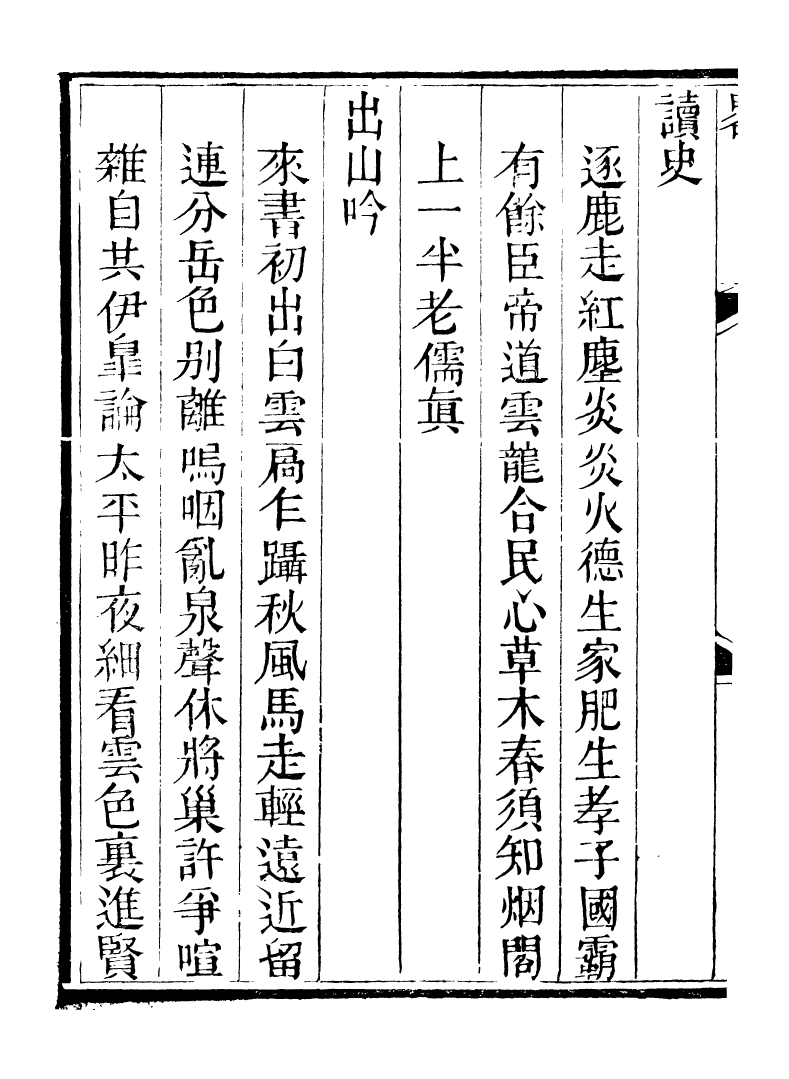 讀史
逐鹿走紅塵炎炎火德生家肥生孝子國霸
有餘臣帝道雲龍合民心草木春須知烟閣
上一半老儒眞
出山吟
來書初出白雲扃乍躡秋風馬走輕遠近留
連分岳色别離嗚咽亂泉聲休將巢許爭喧
雜自共伊臯論太平昨夜細看雲色裏進賢